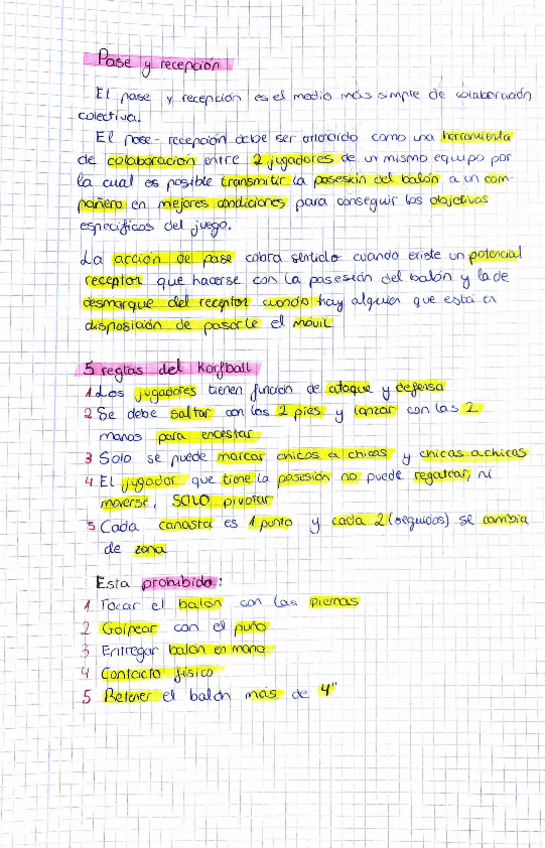 Pase y recepción
El pase y recepción es el medio más simple de colaboración
colectiva.
El pase-recepción debe ser entendido como una herramienta
de colaboración entre 2 jugadores de un mismo equipo por
la cual es posible transmitir la posesión del balón a un com-
pañero en mejores condiciones para conseguir los objetivos
específicos del juego.
La acción de pase cobra sentido cuando existe un potencial
receptor que hacerse con la posesión del balón y la de
desmarque del receptor cuando hay alguien que está en
disposición de pasarle el móvil
5 reglas del Korfball
1 Los jugadores tienen función de ataque y defensa
2 Se debe saltar con los 2 pies y lanzar con las 2
manos para encestar
3 Solo se puede marcar chicos a chicos y chicas a chicas
4 El jugador que tiene la posesión no puede regatear, ni
moverse, SOLO pivotar
5 Cada canasta es 1 punto y cada 2 (seguidos) se cambia
de zona
Esta prohibido:
1 Tocar el balón con las piernas
2 Golpear con el puño
3 Entregar balón en mano
4 Contacto físico
5 Retener el balón más de 4"